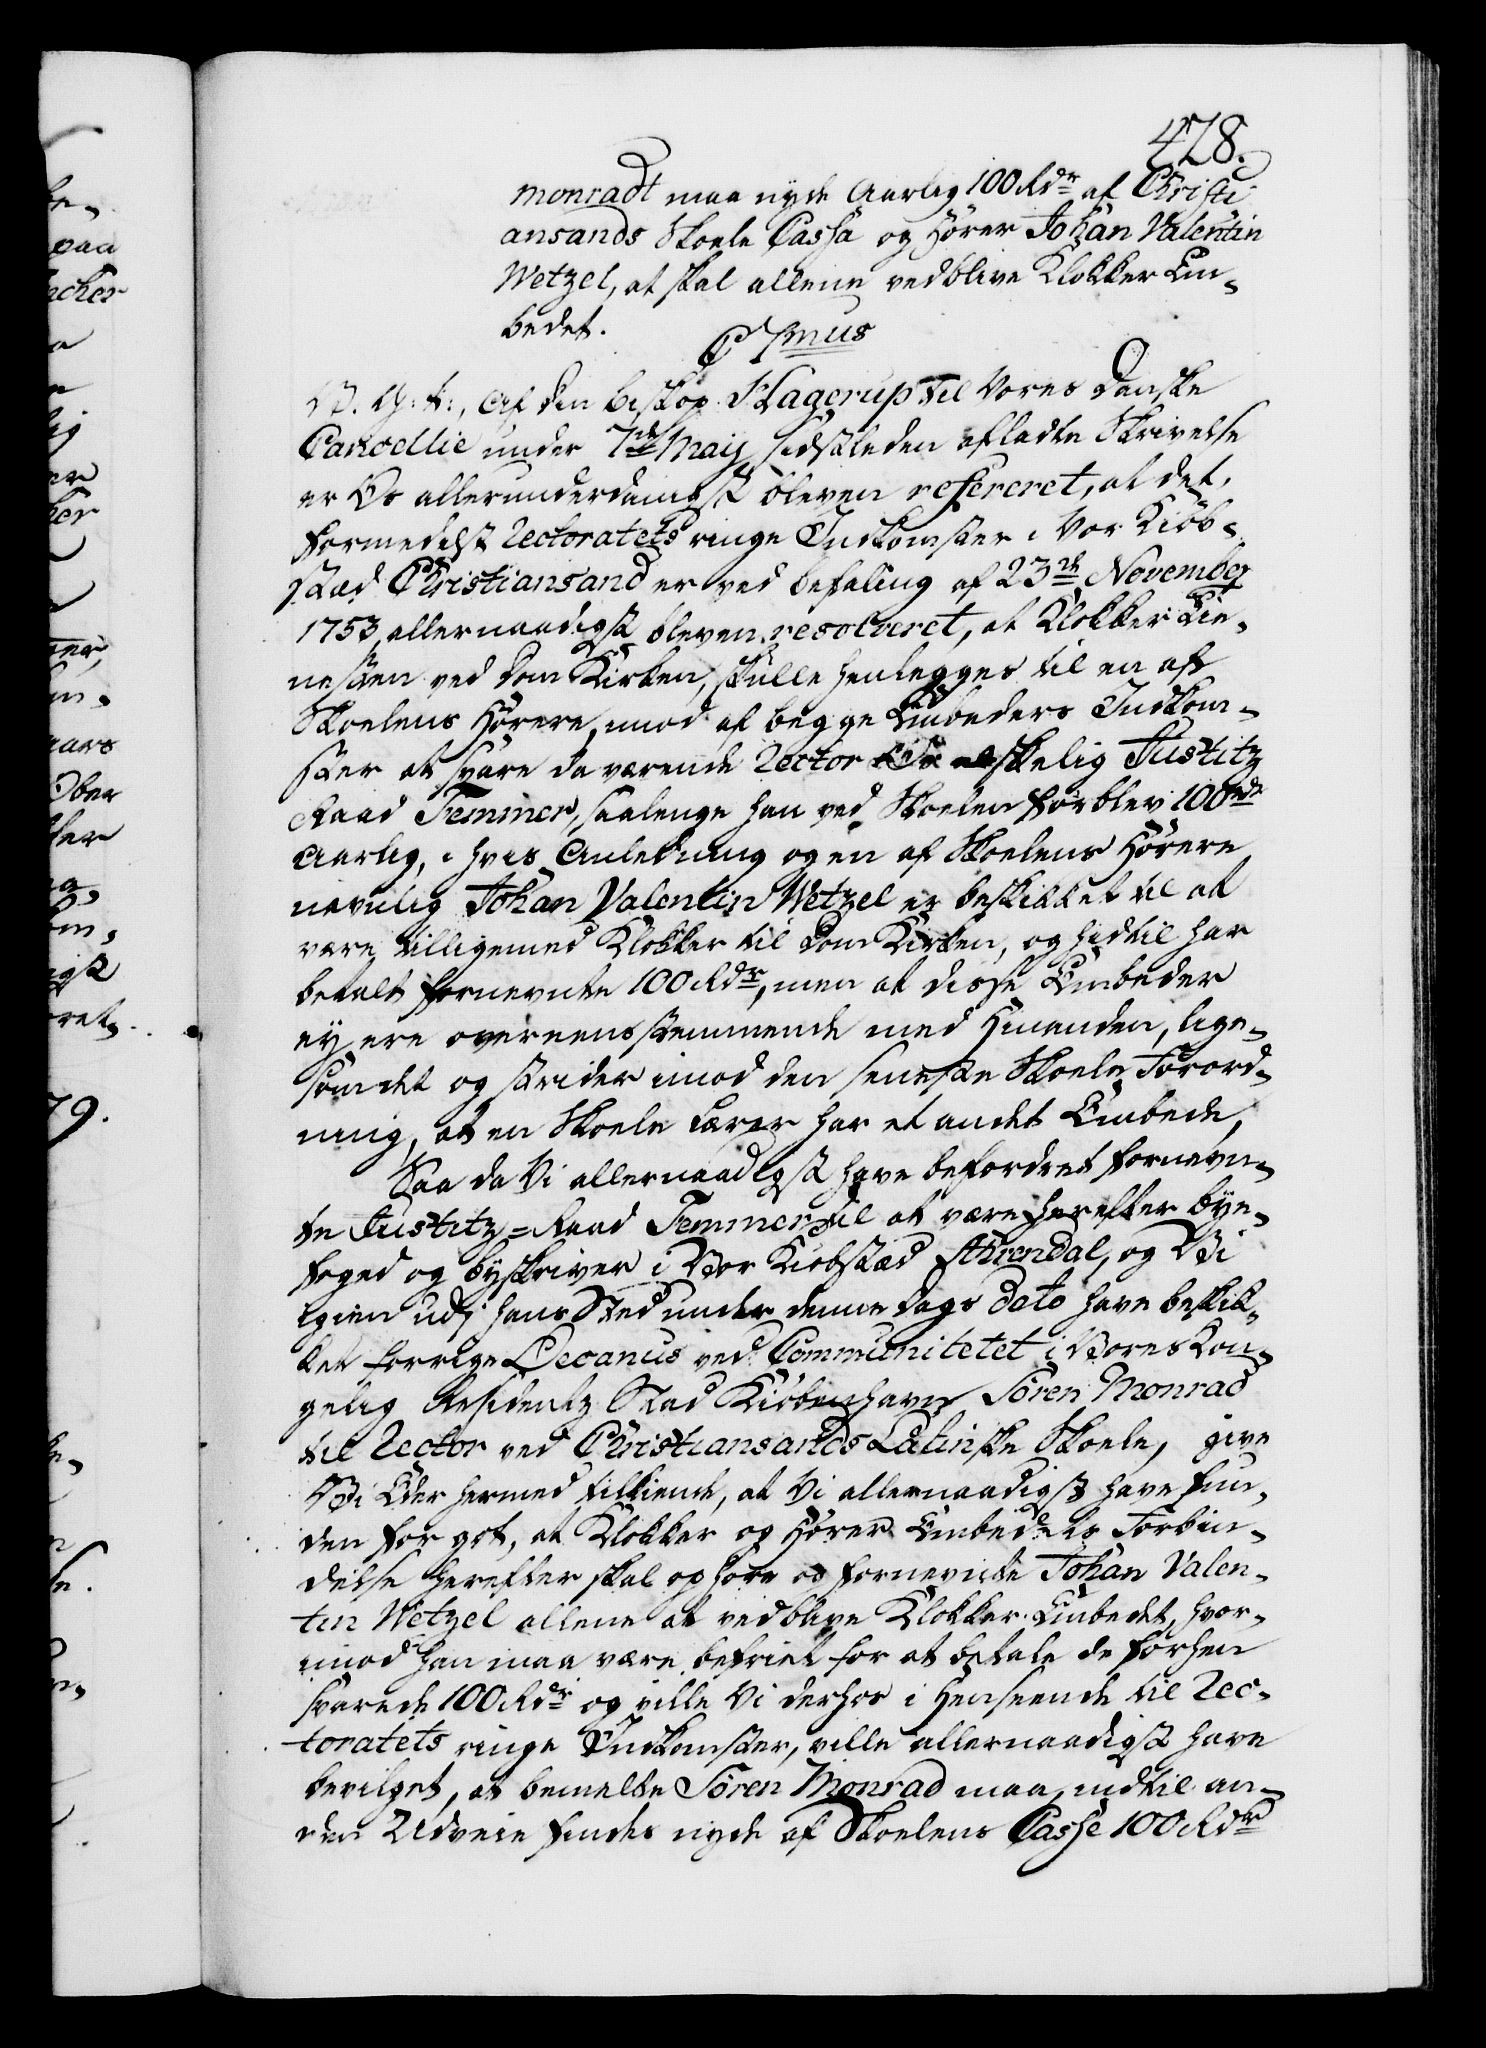 478.
monradt maa nyde Aarlig 100 Rdr af Christi
ansands Skoele Cassa og Hører Johan Valentin
Wetzel, at skal allene vedblive Klokker Em-
bedet.
C 7mus
V. G. T., Af den biskop Hagerup til Vores Danske
Cancellie under 7de Maij sidstleden afladte Skrivelse
er Os allerunderdanigst bleven refereret, at det,
formedelst Rectoratets ringe Indkomster i Vor Kiøb-
stæd Christiansand er ved befaling af 23de November
1753, allernaadigst bleven resolveret, at Klokker Tie-
nesten ved Dom Kirken, skulle henlegges til en af
Skoelens Hørere, mod af begge Embeders Indkom-
ster at svare da værende Rector Os elskelig Justitz
Raad Temmer, saalenge han ved Skoelen forblev 100 rdr
Aarlig, i hvis Anledning og en af Skoelens Hørere
nevnlig Johan Valentin Wetzel er beskikket til at
være tilligemed Klokker til Dom Kirken, og hidtil har
betalt fornevnte 100 Rdr, men at disse Embeder
ey ere overeensstemmende med Hinanden, lige-
som det og strider imod den seneste Skoele Forord-
ning, at en Skoele Lærer har et andet Embede,
Saa da Vi allernaadigst have befordret fornevn-
te Justitz=Raad Temmer til at være herefter bye-
foged og byskriver i Vor Kiøbstæd Ahrendal, og Vi
igien udj hans Sted under denne Dags Dato have beskik-
ket forrige Decanus ved Communitetet i Vores Kon-
gelig Residentz Stad Kiøbenhavn Sören Monrad
til Rector ved Christiansands Latinske Skoele, give
Vi Eder hermed tilkiende, at Vi allernaadigst have fun-
den for got, at Klokker og Hører Embedets Forbin-
delse herefter skal ophøre og fornevnte Johan Valen-
tin Wetzel allene at vedblive Klokker Embedet, hvor-
imod han maa være befriet for at betale de forhen
svarede 100 Rdr og ville Vi derhos i Henseende til Rec-
toratets ringe Indkomster, ville allernaadigst have
bevilget, at bemelte Sören Monrad maa, indtil an-
den Udveie findes nyde af Skoelens Casse 100 Rdr